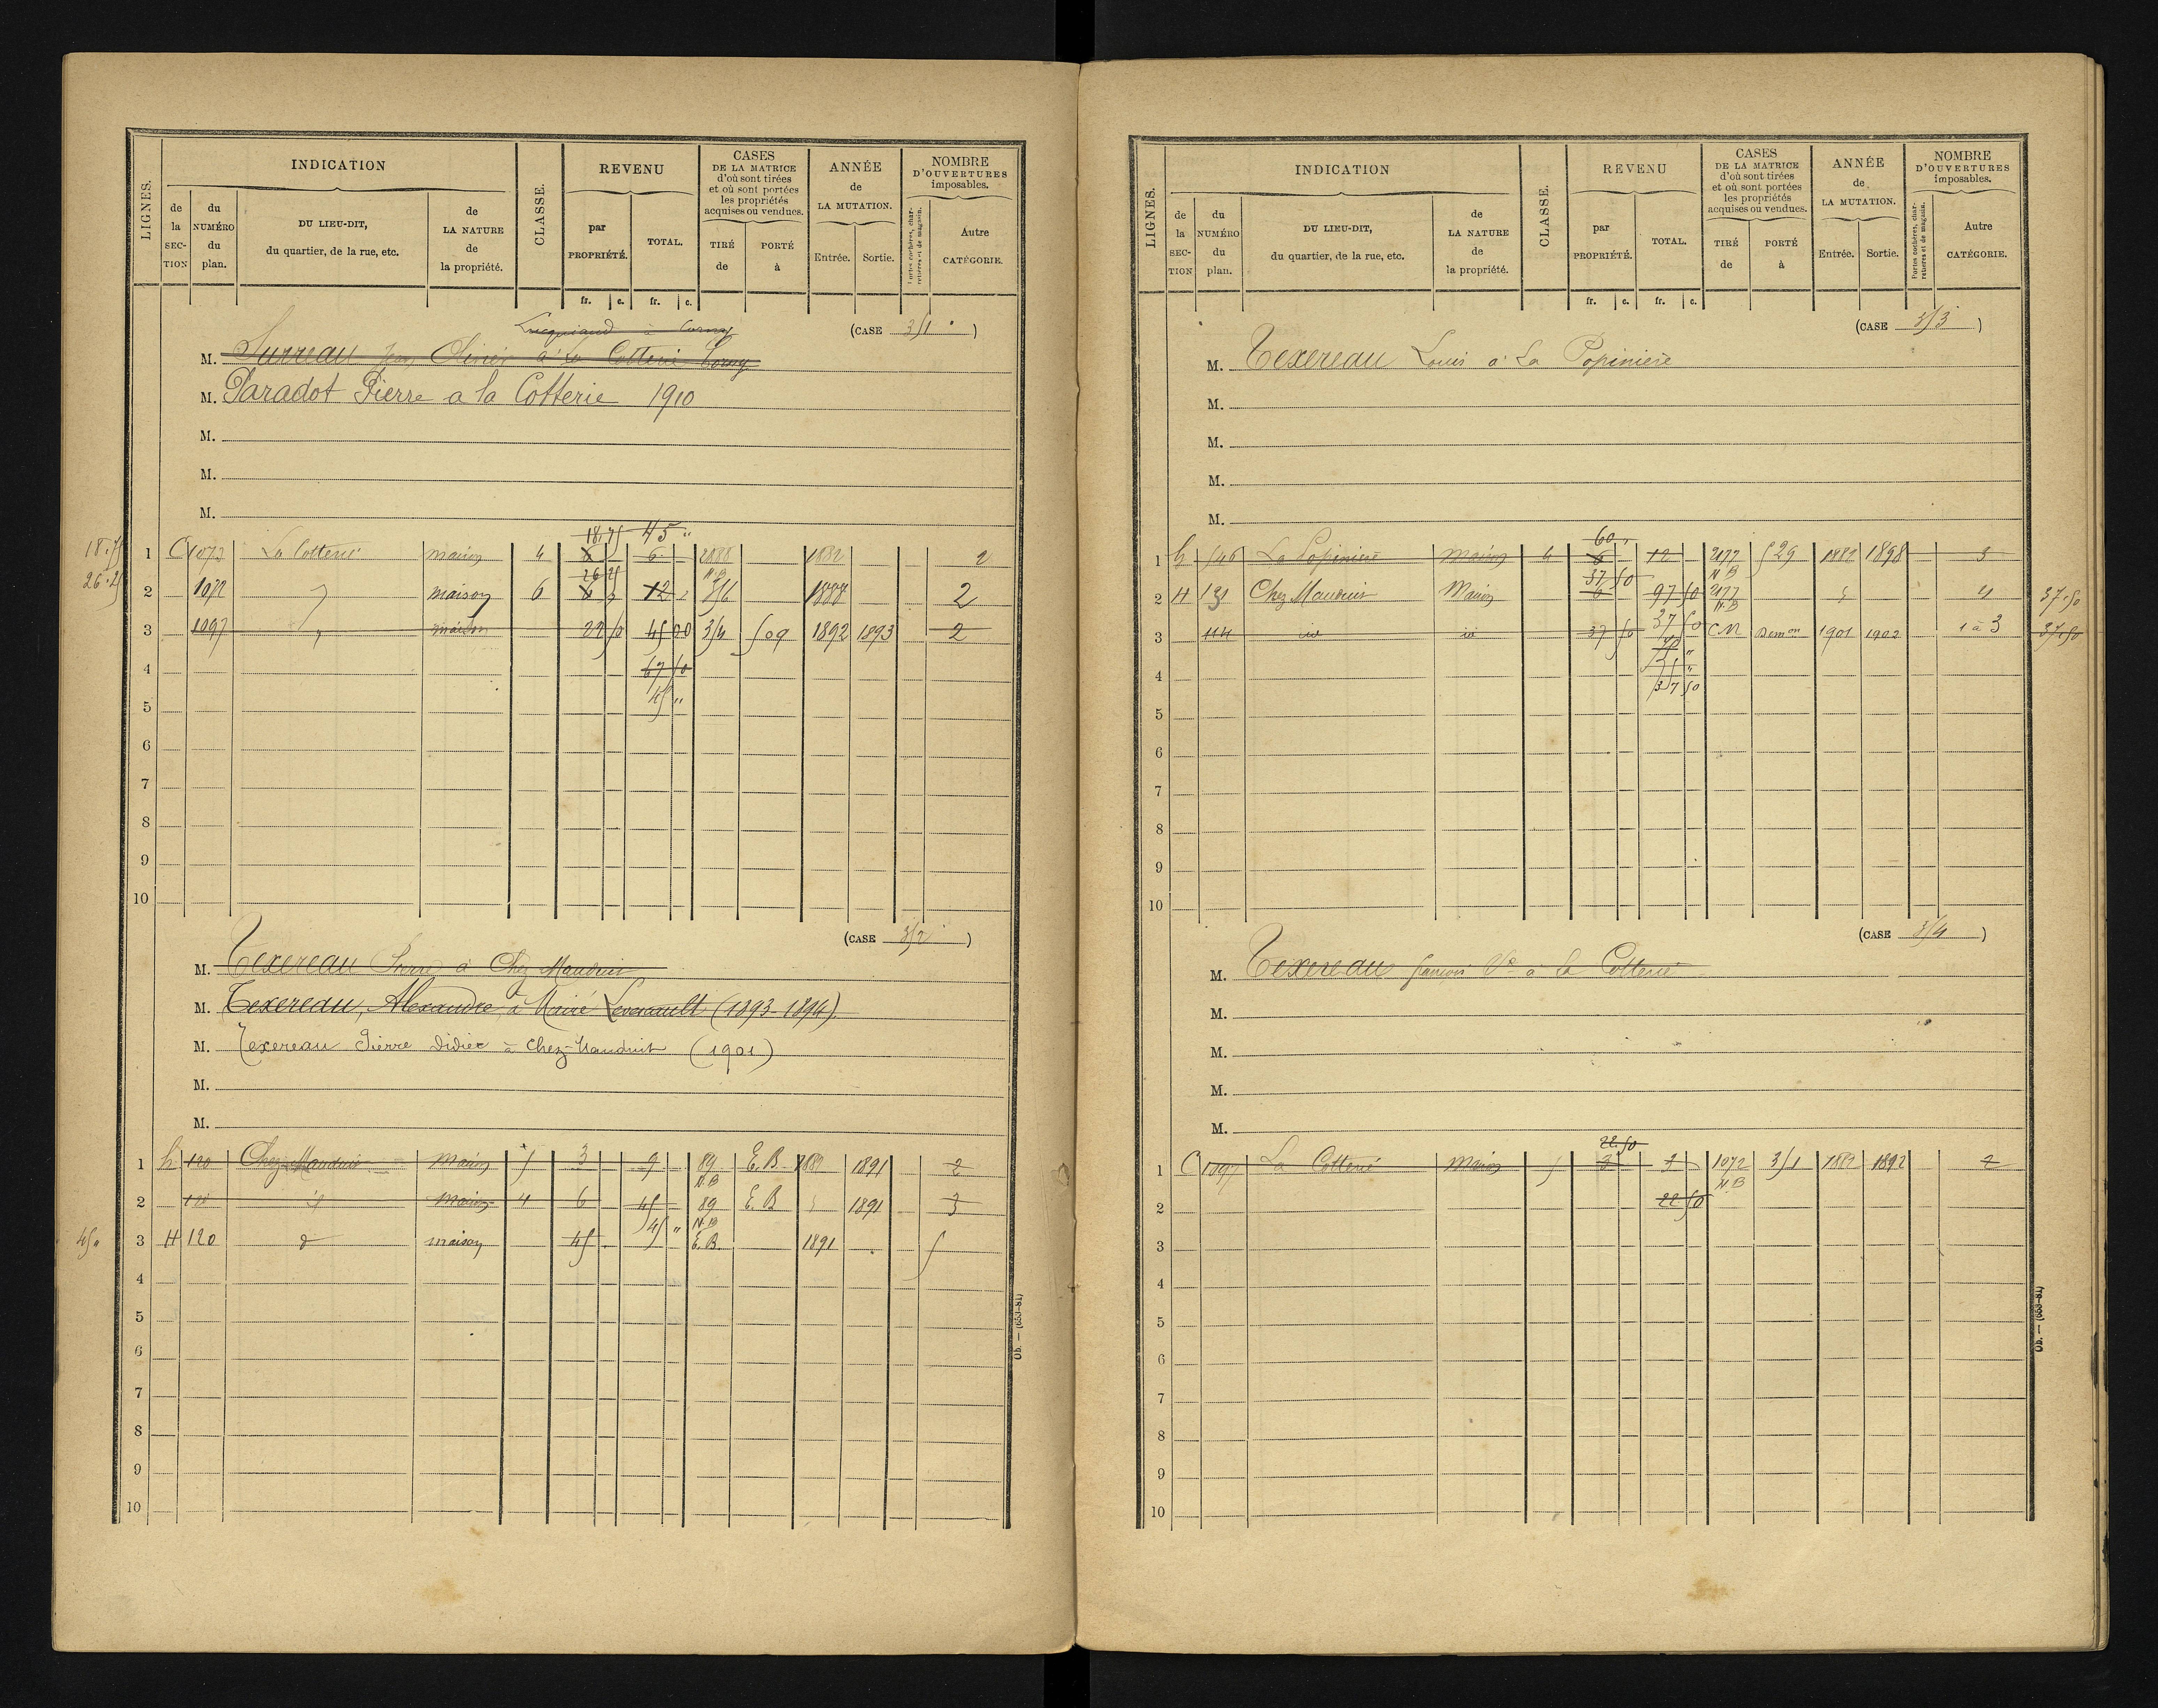 LIGNES.
INDICATION
de la SEC-TION
du NUMÉRO du plan.
DU LIEU-DIT, du quartier, de la rue, etc.
de LA NATURE de la propriété.
CLASSE.
REVENU
par PROPRIÉTÉ.
TOTAL.
fr. c. fr. c.
CASES DE LA MATRICE d'où sont tirées et où sont portées les propriétés acquises ou vendues.
TIRÉ de
PORTÉ à
ANNÉE de LA MUTATION.
Entrée. Sortie.
NOMBRE D'OUVERTURES imposables.
Portes cochères, charretières et de magasin.
Autre CATÉGORIE.
(CASE 351)
M. Surreau Jean Olivier à la Cotterie
M. Paradot Pierre a la Cotterie 1910
M.
M.
M.
18.75 45 "
18.75 1 C 1073 La Cotterie maison 4 6 6 1882 2
26.25
26.25 2 1072 " maison 6 6 12 356 1888 2
3 1097 " maison 22 50 45 00 354 509 1892 1893 2
4 67 50
45 "
5
6
7
8
9
10
(CASE 352)
M. Texereau Pierre à Chez Mauduit
M. Texereau, Alexandre, à Mairé Levescault (1893-1894)
M. Texereau Pierre Didier à Chez-Mauduit (1901)
M.
M.
1 h 120 Chez Mauduit Maison 5 3 9 89 E.B. 1882 1891 2
N.B
2 120 id Maison 4 6 45 89 E.B 1891 3
45 " N.B
3 H 120 d maison 45 E.B. 1891 5
4
5
6
7
8
9
10
Ob. — (653-81)
LIGNES.
INDICATION
de la SEC-TION
du NUMÉRO du plan.
DU LIEU-DIT, du quartier, de la rue, etc.
de LA NATURE de la propriété.
CLASSE.
REVENU
par PROPRIÉTÉ.
TOTAL.
fr. c. fr. c.
CASES DE LA MATRICE d'où sont tirées et où sont portées les propriétés acquises ou vendues.
TIRÉ de
PORTÉ à
ANNÉE de LA MUTATION.
Entrée. Sortie.
NOMBRE D'OUVERTURES imposables.
Portes cochères, charretières et de magasin.
Autre CATÉGORIE.
(CASE 353)
M. Texereau Louis à La Popinière
M.
M.
M.
M.
60 "
1 h 546 La Popinière Maison 4 6 12 2177 529 1882 1898 3
37 50 N B
2 H 131 Chez Mauduit Maison 6 97 50 2177 4 37.50
37 50 N.B
3 114 id id 37 50 CN Demon 1901 1902 1 à 3 37.50
75 "
4
37 50
5
6
7
8
9
10
(CASE 354)
M. Texereau françois Ve à La Cotterie
M.
M.
M.
M.
22.50
1 C 1097 La Cotterie Maison 5 3 3 1072 351 1882 1892 2
N.B
2 22 50
3
4
5
6
7
8
9
10